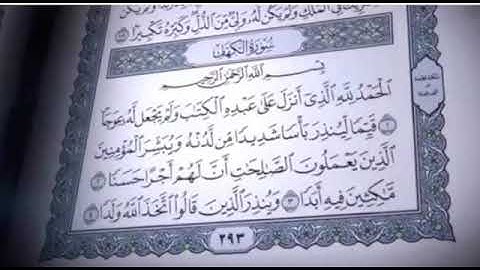 ٱلْمُلْكِ وَلَمْ يَكُن لَّهُۥ وَلِىٌّ مِّنَ ٱلذُّلِّ وَكَبِّرْهُ تَكْبِيرًۢا ١١١
سُورَةُ ٱلْكَهْفِ
بِسْمِ ٱللَّهِ ٱلرَّحْمَٰنِ ٱلرَّحِيمِ
ٱلْحَمْدُ لِلَّهِ ٱلَّذِىٓ أَنزَلَ عَلَىٰ عَبْدِهِ ٱلْكِتَٰبَ وَلَمْ يَجْعَل لَّهُۥ عِوَجَا
١ قَيِّمًا لِّيُنذِرَ بَأْسًا شَدِيدًا مِّن لَّدُنْهُ وَيُبَشِّرَ ٱلْمُؤْمِنِينَ
ٱلَّذِينَ يَعْمَلُونَ ٱلصَّٰلِحَٰتِ أَنَّ لَهُمْ أَجْرًا حَسَنًا ٢
مَّٰكِثِينَ فِيهِ أَبَدًا ٣ وَيُنذِرَ ٱلَّذِينَ قَالُوا۟ ٱتَّخَذَ ٱللَّهُ وَلَدًا ٤
٢٩٣